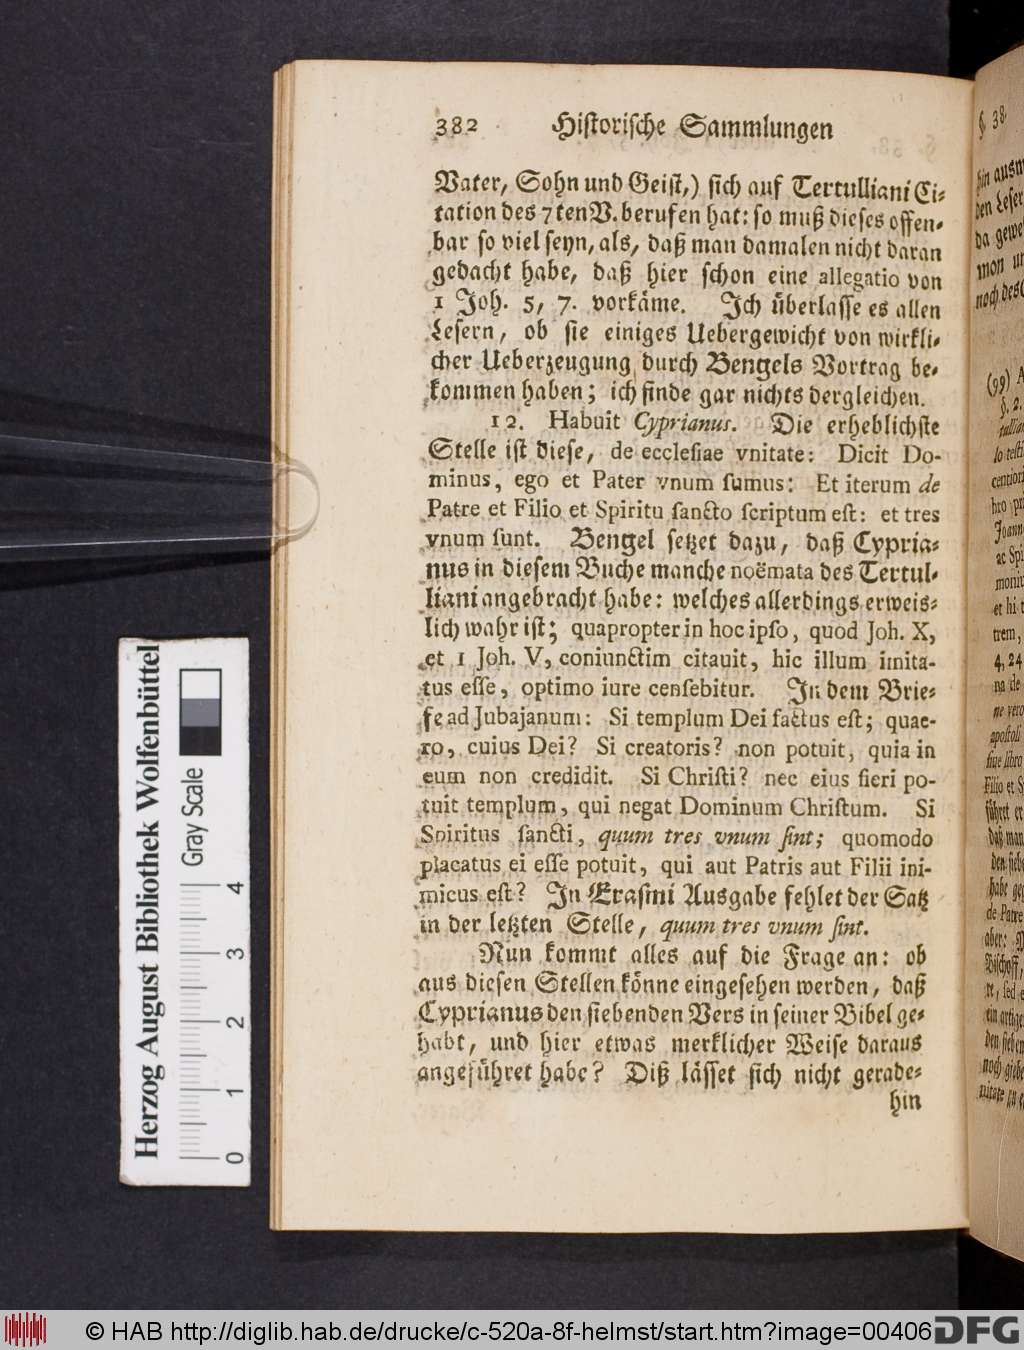 382 Historische Sammlungen
Vater, Sohn und Geist,) sich auf Tertulliani Ci-
tation des 7ten V. berufen hat: so muß dieses offen-
bar so viel seyn, als, daß man damalen nicht daran
gedacht habe, daß hier schon eine allegatio von
1 Joh. 5, 7. vorkäme. Ich überlasse es allen
Lesern, ob sie einiges Uebergewicht von wirkli-
cher Ueberzeugung durch Bengels Vortrag be-
kommen haben; ich finde gar nichts dergleichen.
12. Habuit Cyprianus. Die erheblichste
Stelle ist diese, de ecclesiae vnitate: Dicit Do-
minus, ego et Pater vnum sumus: Et iterum de
Patre et Filio et Spiritu sancto scriptum est: et tres
vnum sunt. Bengel setzet dazu, daß Cypria-
nus in diesem Buche manche noëmata des Tertul-
liani angebracht habe: welches allerdings erweis-
lich wahr ist; quapropter in hoc ipso, quod Joh. X,
et 1 Joh. V, coniunctim citauit, hic illum imita-
tus esse, optimo iure censebitur. In dem Brie-
fe ad Jubajanum: Si templum Dei factus est; quae-
ro, cuius Dei? Si creatoris? non potuit, quia in
eum non credidit. Si Christi? nec eius fieri po-
tuit templum, qui negat Dominum Christum. Si
Spiritus sancti, quum tres vnum sint; quomodo
placatus ei esse potuit, qui aut Patris aut Filii ini-
micus est? In Erasmi Ausgabe fehlet der Satz
in der letzten Stelle, quum tres vnum sint.
Nun kommt alles auf die Frage an: ob
aus diesen Stellen könne eingesehen werden, daß
Cyprianus den siebenden Vers in seiner Bibel ge-
habt, und hier etwas merklicher Weise daraus
angeführet habe? Diß lässet sich nicht gerade-
hin
§. 38.
hin
den Leser
da
mon
noch
(99) A
§. 2.
lo testi
centiori
Joann
ac Spi
et hi t
trem,
4, 24
na de
ne vero
apostoli
Filio et S
führet er
daß man
den siebe
de Patre
aber:
Bischoff,
Herzog August Bibliothek Wolfenbüttel
Gray Scale
0 1 2 3 4
© HAB http://diglib.hab.de/drucke/c-520a-8f-helmst/start.htm?image=00406
DFG